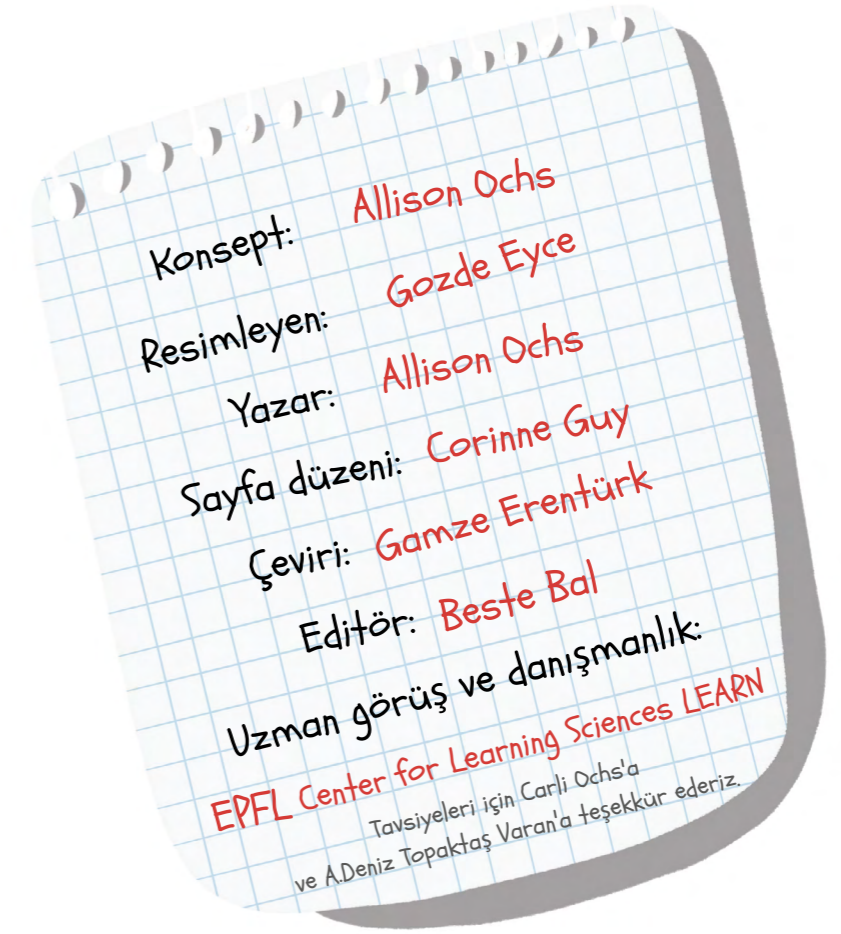 Konsept: Allison Ochs
Resimleyen: Gozde Eyce
Yazar: Allison Ochs
Sayfa düzeni: Corinne Guy
Çeviri: Gamze Erentürk
Editör: Beste Bal
Uzman görüş ve danışmanlık:
EPFL Center for Learning Sciences LEARN
Tavsiyeleri için Carli Ochs'a
ve A.Deniz Topaktaş Varan'a teşekkür ederiz.